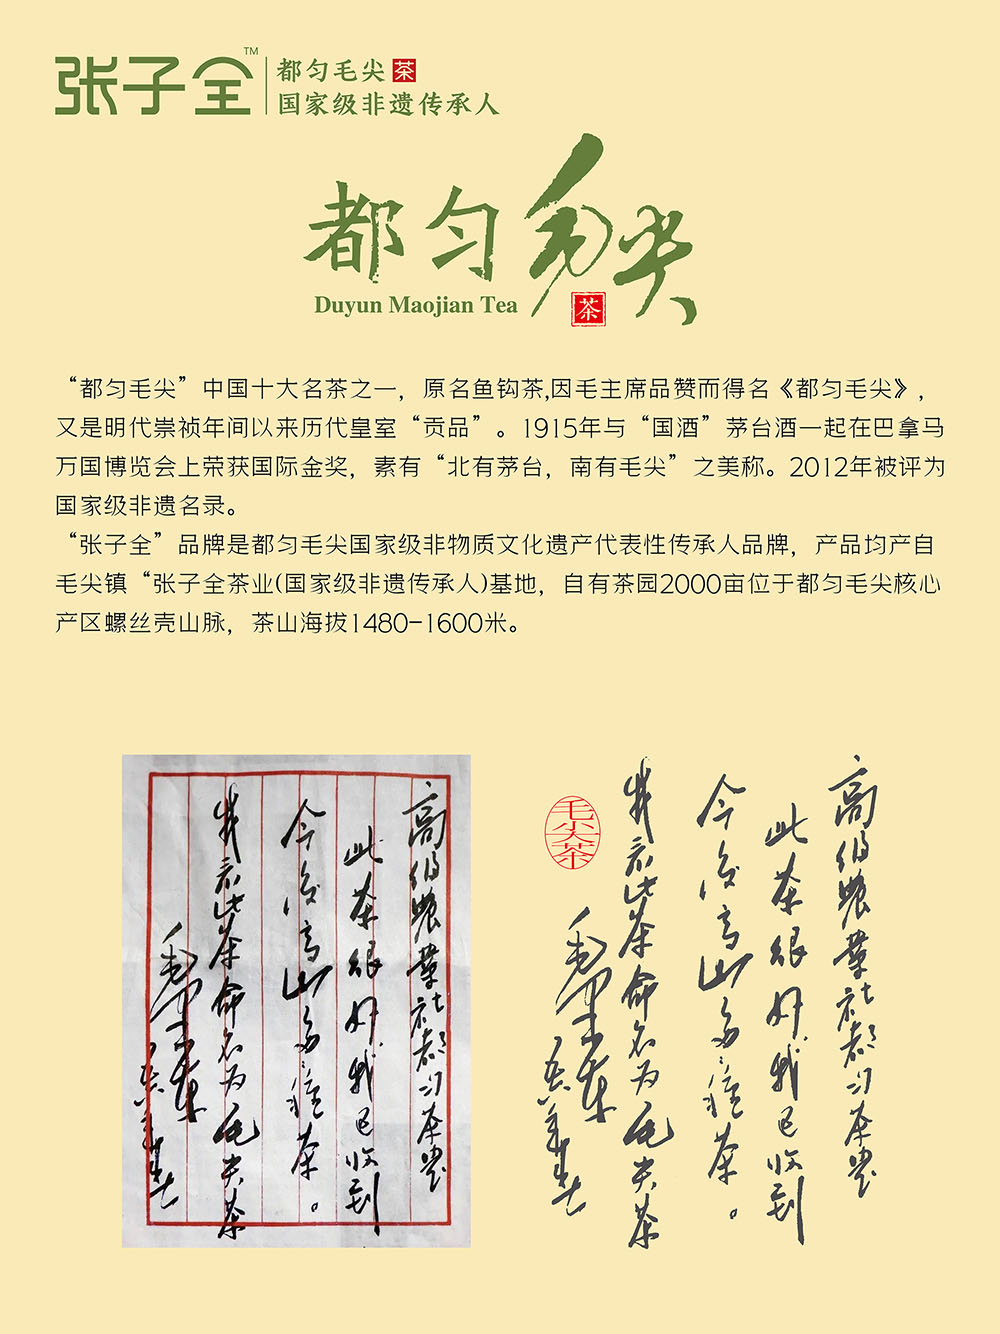 张子全™
都匀毛尖 茶
国家级非遗传承人
都匀毛尖
Duyun Maojian Tea
茶
“都匀毛尖”中国十大名茶之一，原名鱼钩茶,因毛主席品赞而得名《都匀毛尖》，
又是明代崇祯年间以来历代皇室“贡品”。1915年与“国酒”茅台酒一起在巴拿马
万国博览会上荣获国际金奖，素有“北有茅台，南有毛尖”之美称。2012年被评为
国家级非遗名录。
“张子全”品牌是都匀毛尖国家级非物质文化遗产代表性传承人品牌，产品均产自
毛尖镇“张子全茶业(国家级非遗传承人)基地，自有茶园2000亩位于都匀毛尖核心
产区螺丝壳山脉，茶山海拔1480-1600米。
此茶很好我已收到
今后高山多种茶。
我看此茶命名为毛尖茶
毛泽东
此茶很好我已收到
今后高山多种茶。
我看此茶命名为毛尖茶
毛泽东
毛尖茶